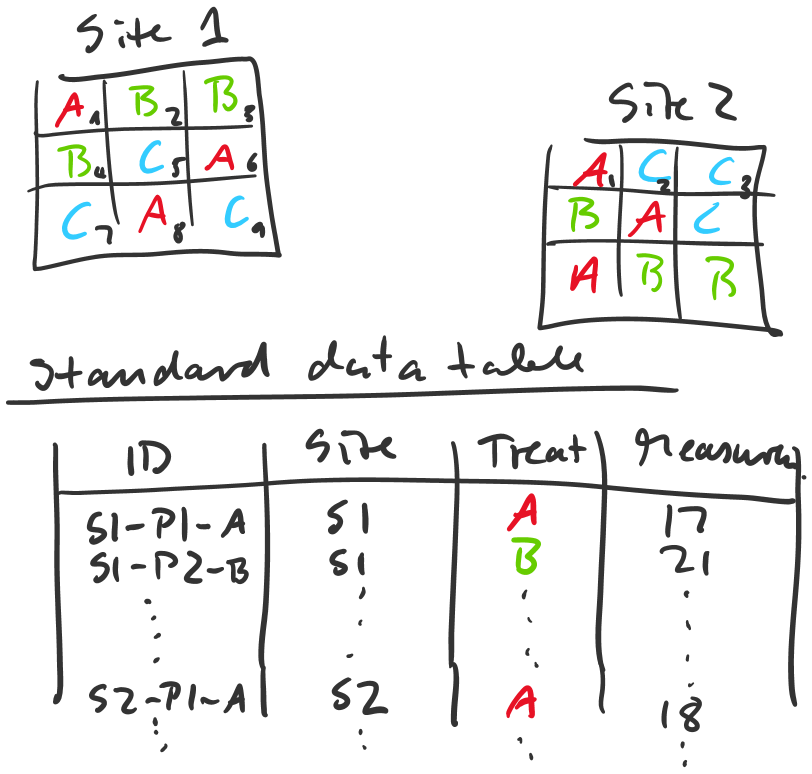 Site 1
A1 B2 B3
B4 C5 A6
C7 A8 C9
Site 2
A1 C2 C3
B A C
A B B
Standard data table
ID Site Treat Measurem.
S1-P1-A S1 A 17
S1-P2-B S1 B 21
S2-P1-A S2 A 18